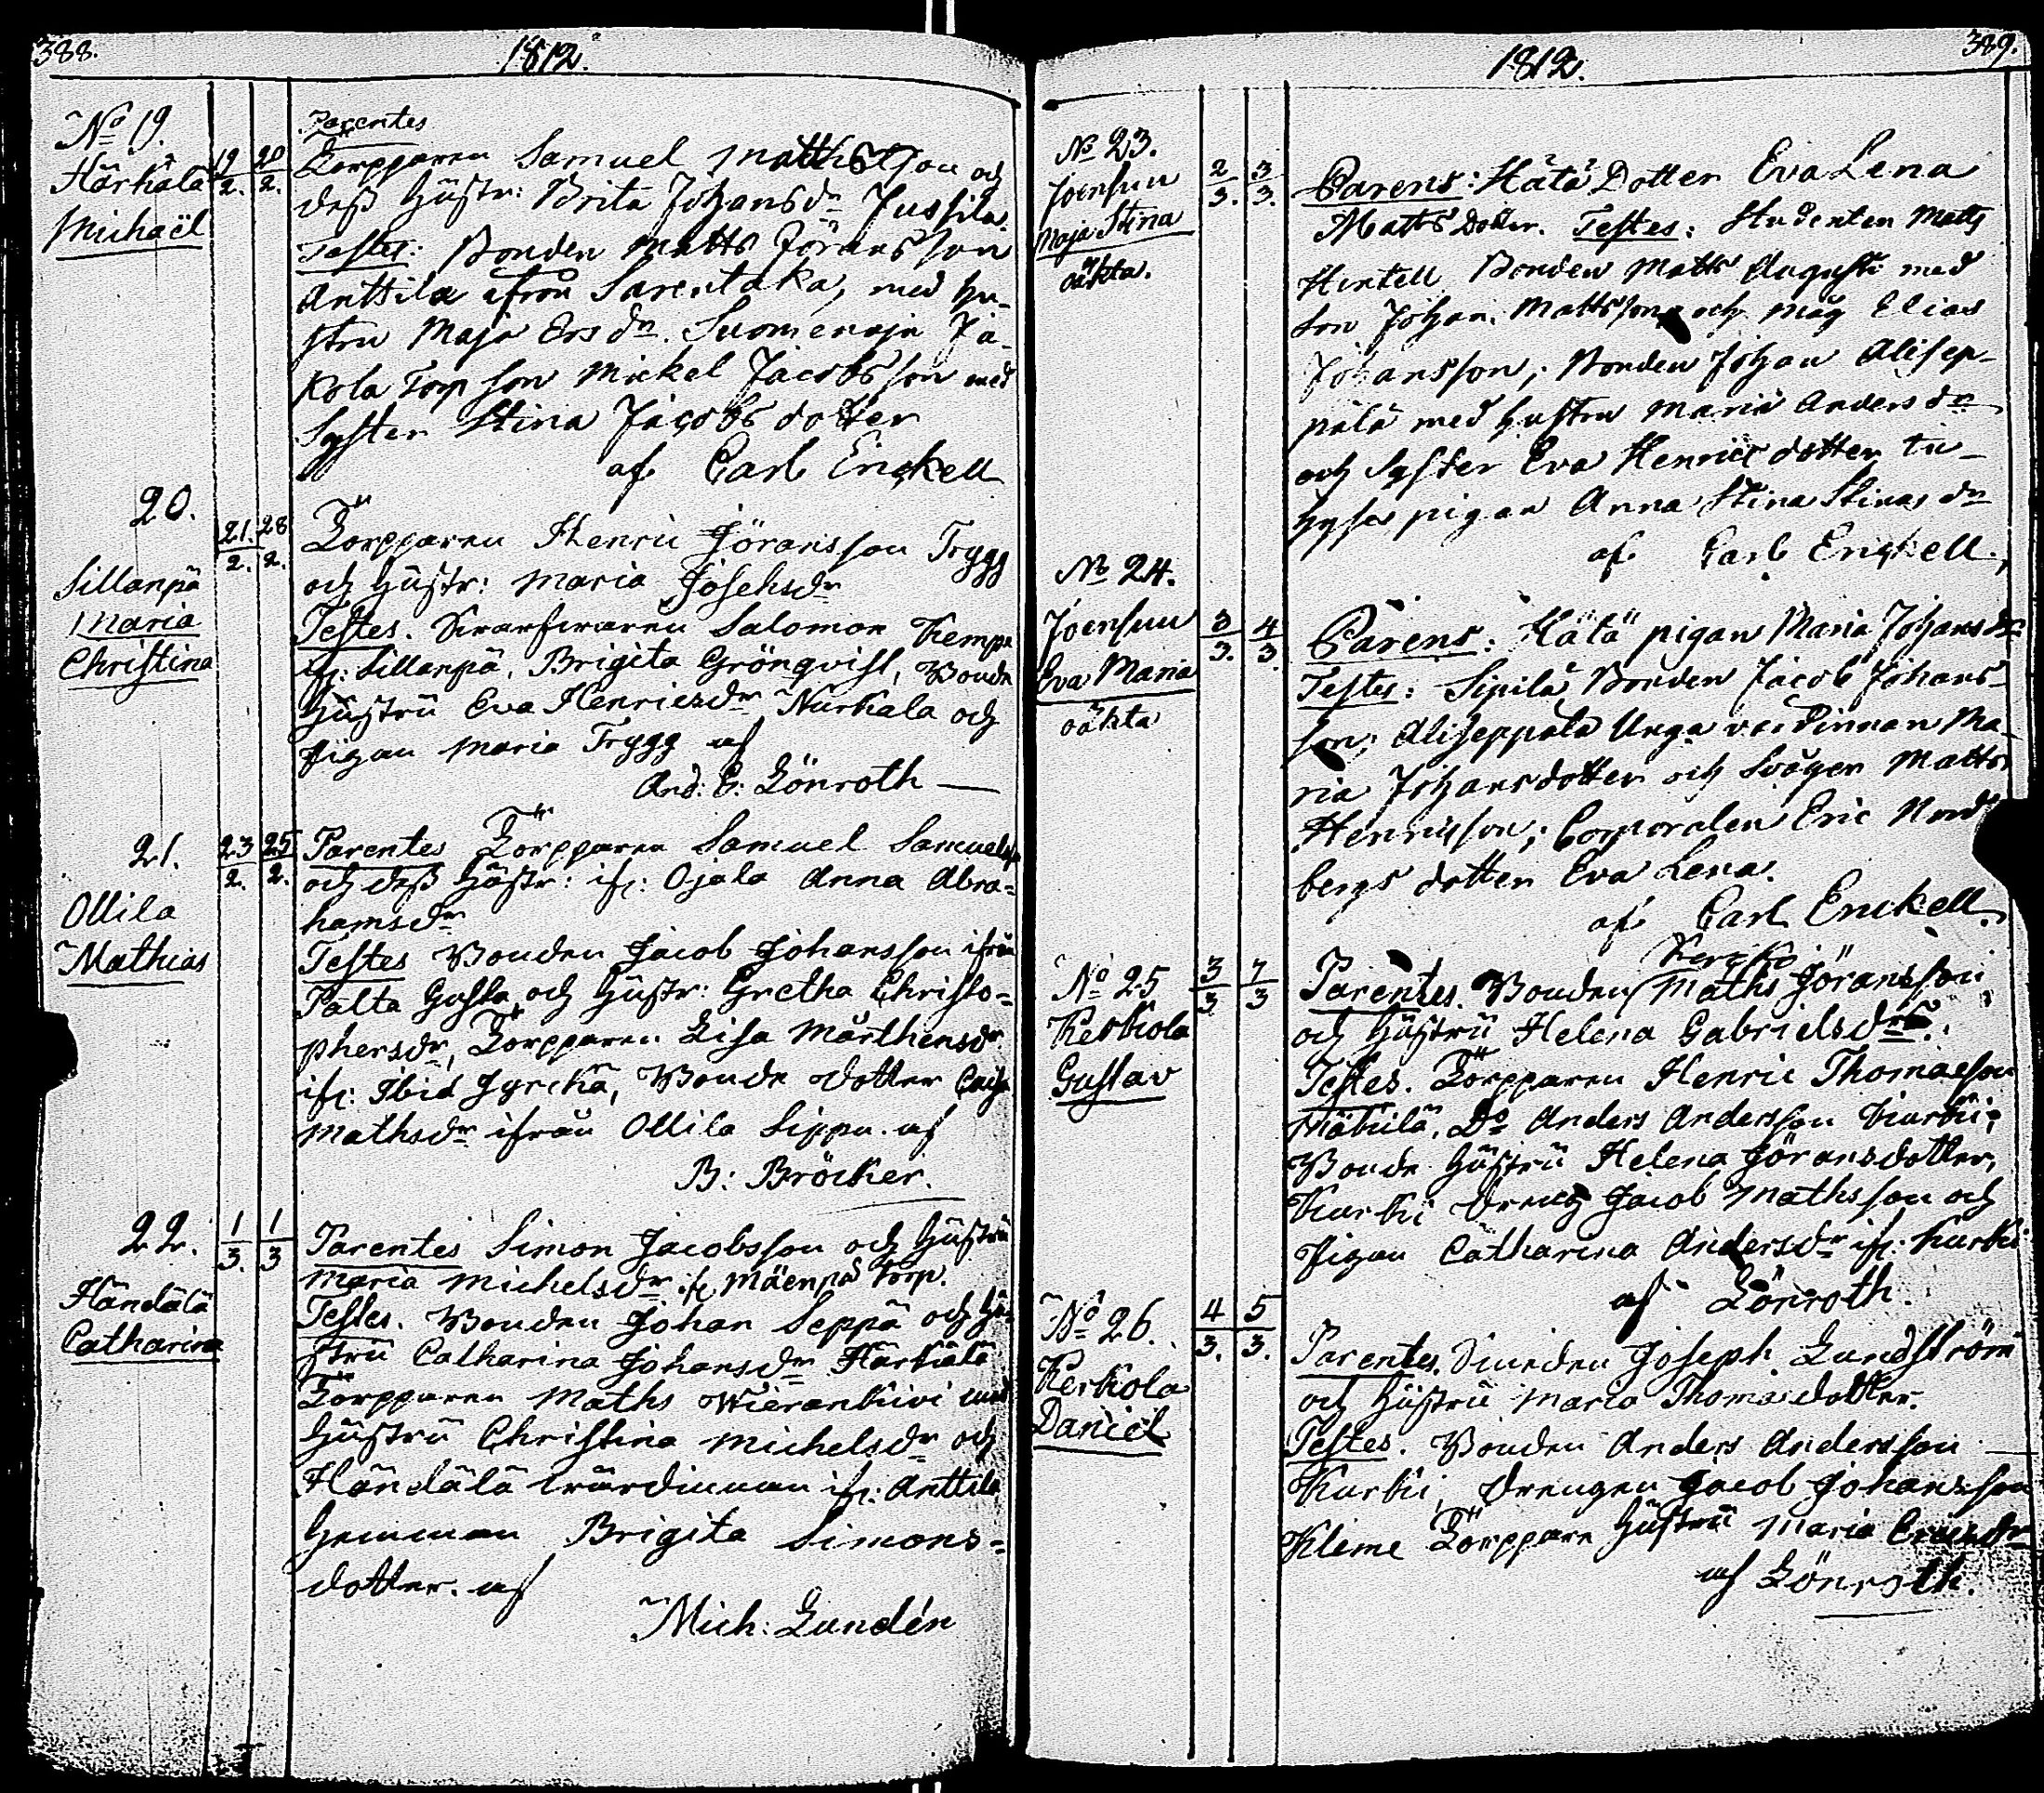 388.
1812.
No 19.
Härkälä
Michaël
19/2. 20/2.
Parentes
Torpparen Samuel Mattsson och
dess Hustr: Brita Johansdr Jussila.
Testes: Bonden Matts Jöransson
Anttila ifrån Sarentaka, med hu-
stru Maja Ersdr. Suomenoja Ja-
kola Torp son Mickel Jacobsson med
Syster Stina Jacobs dotter
af Carl Enckell
20.
Sillanpä
Maria
Christina
21./2. 28/2.
Torpparen Henric Jöransson Trygg
och Hustr: Maria Josephsdr
Testes. Svarfvaren Salomon Kempe
ifr: Sillanpä, Brigita Grönqvist, Bonde
Hustru Eva Henricsdr Nurkala och
Pigan Maria Trygg af
And: E: Lönroth
21.
Ollila
Mathias
23/2. 25/2.
Parentes Torpparen Samuel Samuelss
och dess Hustr: ifr: Ojala Anna Abra=
hamsdr
Testes Bonden Jacob Johansson ifrån
Palta Gusta och Hustr: Gretha Christo=
phersdr, Torpparen Lisa Mårthensdr
ifr: Ibid Jyrckä, Bonde dotter Caisa
Mathsdr ifrån Ollila Sippu. af
B: Bröcker.
22.
Händälä
Catharina
1/3. 1/3
Parentes Simon Jacobsson och Hustru
Maria Michelsdr ifr Mäenpä torp.
Testes. Bonden Johan Seppä och Hu=
stru Catharina Johansdr Härkälä
Torpparen Maths Wierankivi med
Hustru Christina Michelsdr och
Händälä värdinnan ifr: Anttila
Hemman Brigita Simons=
dotter. af
Mich: Lundén
389.
1812.
No 23.
Joensuu
Maja Stina
oäkta.
2/3. 3/3.
Parens: Hätä Dotter Eva Lena
Matts Dotter. Testes: Studenten Matts
Hertell Bonden Matts Augusti med
son Johan Mattsson och Måg Elias
Johansson; Bonden Johan Alisep-
pälä med hustru Maria Andersdr
och Syster Eva Henrics dotter in-
hyses pigan Anna Stina Stinas dr
af Carl Enckell.
No 24.
Joensuu
Eva Maria
oäkta
3/3. 4/3.
Parens: Hätä pigan Maria Johansdr
Testes: Sipilä Bonden Jacob Johans-
son; Aliseppälä Unga värdinnan Ma-
ria Johansdotter och Svåger Matts
Henricsson; Corporalen Eric Nord
bergs dotter Eva Lena.
af Carl Enckell.
No 25
Kerkola
Gustav
3/3 7/3
Parentes. Bonden Maths Jöransson
och Hustru Helena Gabrielsdr.
Testes. Torpparen Henric Thomasson
Mäkilä, Do Anders Andersson Kurki;
Bonde Hustru Helena Jöransdotter,
Kurki Dreng Jacob Mathsson och
Pigan Catharina Andersdr ifr: Kurki
af Lönroth.
No 26.
Kerkola
Daniel
4/3. 5/3.
Parentes. Smeden Joseph Lundström
och Hustru Maria Thomasdotter.
Testes. Bonden Anders Andersson
Kurki, Drengen Jacob Johansson
Kleme Torppare Hustru Maria
af Lönroth.